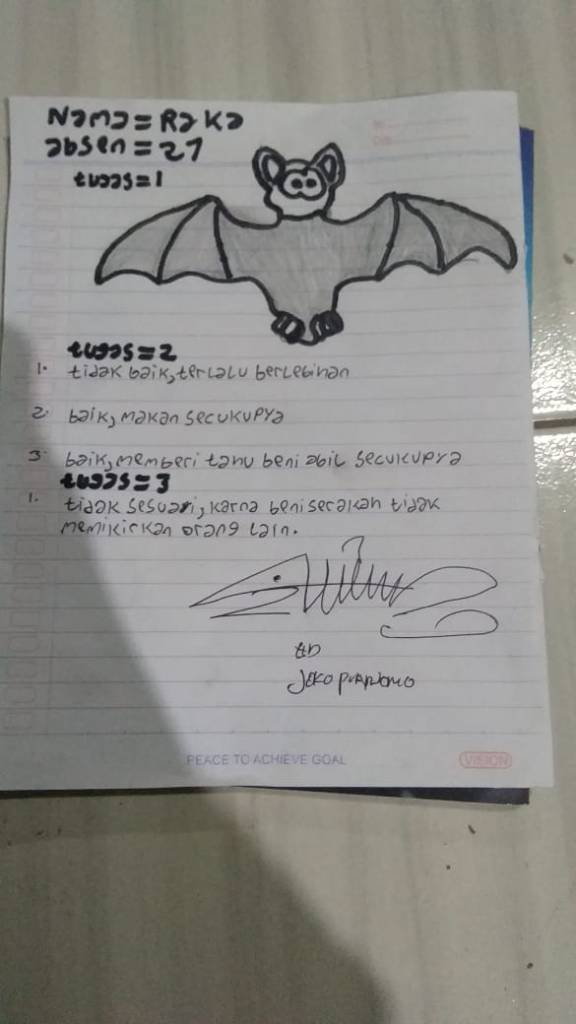 Nama = Raka
absen = 21
tugas = 1
tugas = 2
1. tidak baik, terlalu berlebihan
2. baik, makan secukupya
3. baik, memberi tahu beni abil secukupya
tugas = 3
1. tidak sesuari, karna beni serakah tidak
memikirkan orang lain.
ttd
PEACE TO ACHIEVE GOAL
VISION